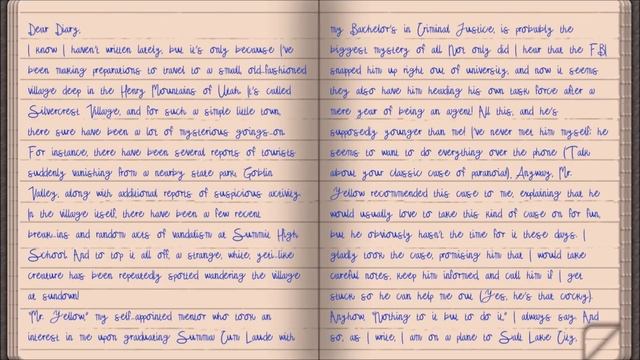 Dear Diary,
I know I haven't written lately, but it's only because I've
been making preparations to travel to a small old-fashioned
village deep in the Henry Mountains of Utah. It's called
Silvercrest Village, and for such a simple little town,
there sure have been a lot of mysterious goings-on.
For instance, there have been several reports of tourists
suddenly vanishing from a nearby state park, Goblin
Valley, along with additional reports of suspicious activity.
In the village itself, there have been a few recent
break-ins and random acts of vandalism at Summit High
School. And to top it all off, a strange, white, yeti-like
creature has been repeatedly spotted wandering the village
at sundown!
"Mr. Yellow," my self-appointed mentor who took an
interest in me upon graduating Summa Cum Laude with
my Bachelor's in Criminal Justice, is probably the
biggest mystery of all. Not only did I hear that the FBI
snapped him up right out of university, and now it seems
they also have him heading his own task force after a
mere year of being an agent! All this, and he's
supposedly younger than me! I've never met him myself; he
seems to want to do everything over the phone. (Talk
about your classic case of paranoia!). Anyway, Mr.
Yellow recommended this case to me, explaining that he
would usually love to take this kind of case on for fun,
but he obviously hasn't the time for it these days. I
gladly took the case, promising him that I would take
careful notes, keep him informed, and call him if I get
stuck so he can help me out. (Yes, he's that cocky).
Anyhow, "Nothing to it but to do it," I always say. And
so, as I write, I am on a plane to Salt Lake City,